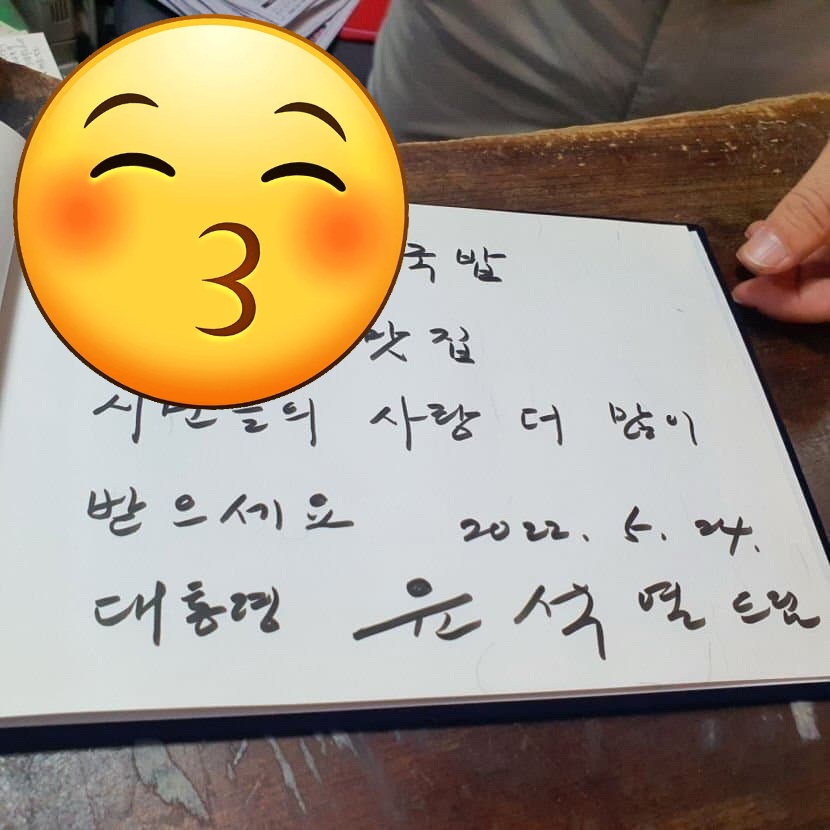 국밥
맛집
시민들의 사랑 더 많이
받으세요 2022. 5. 24.
대통령 윤석열 드림